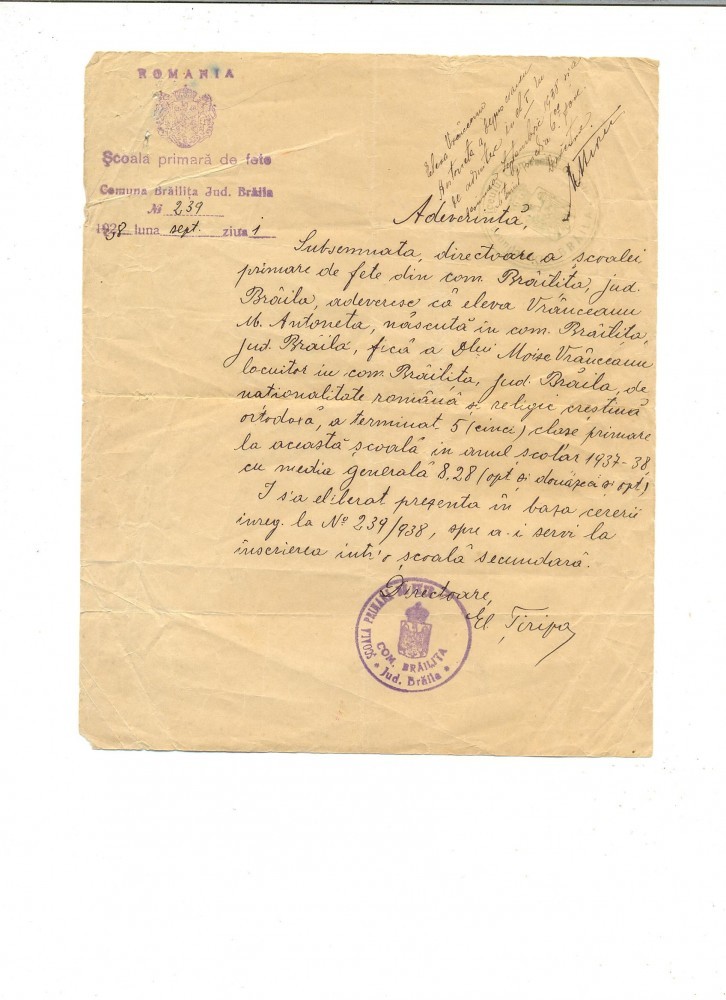 ROMANIA
Școala primară de fete
Comuna Brăilița Jud. Brăila
№ 239
1938 luna sept. ziua 1
Eleva Vrânceanu
Antoneta a depus cerere
de admitere in cl. I
Septembrie 1938
Adeverință,
Subsemnata, directoare a scoalei
primare de fete din com. Brăilita, jud.
Brăila, adeveresc că eleva Vrânceanu
M. Antoneta, născută in com. Brăilita,
jud. Braila, fică a Dlui Moise Vrânceanu
locuitor in com. Brăilita, jud. Brăila, de
nationalitate română și religie creștină
ortodoxă, a terminat 5 (cinci) clase primare
la această școală in anul scolar 1937-38,
cu media generală 8,28 (opt și douăzeci și opt)
I s'a eliberat prezenta în baza cererii
inreg. la № 239/938, spre a-i servi la
înscrierea intr'o școală secundară.
Directoare,
El Țiripa
ȘCOALA PRIMARĂ
COM. BRĂILIȚA
Jud. Brăila